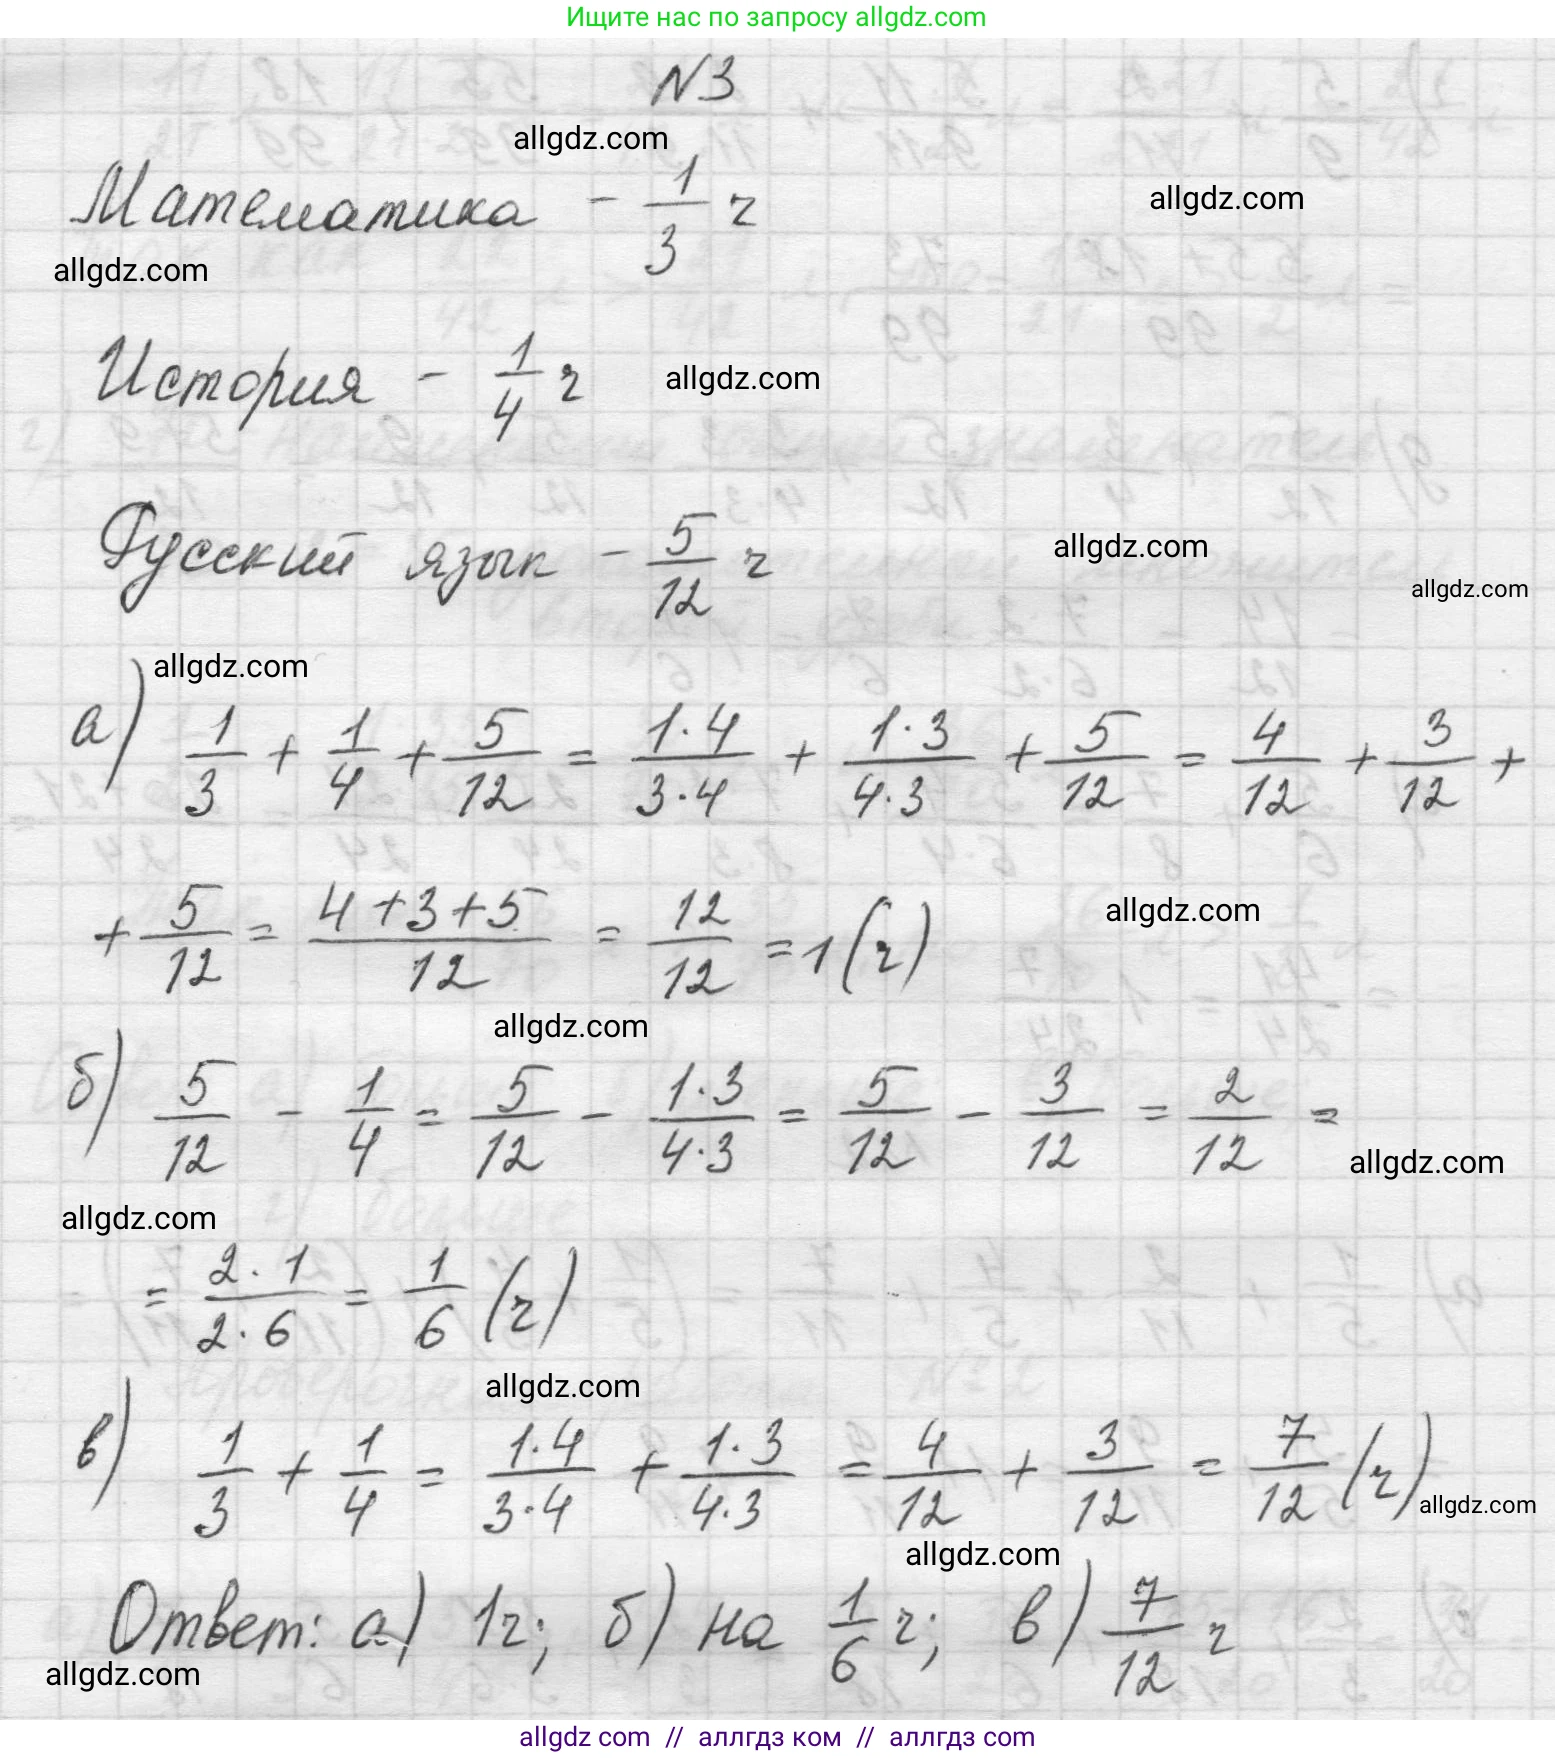 Ищите нас по запросу allgdz.com
№3
allgdz.com
Математика - 1/3 ч
allgdz.com
allgdz.com
История - 1/4 ч
allgdz.com
Русский язык - 5/12 ч
allgdz.com
allgdz.com
allgdz.com
а) 1/3 + 1/4 + 5/12 = 1·4/3·4 + 1·3/4·3 + 5/12 = 4/12 + 3/12 +
+ 5/12 = 4+3+5/12 = 12/12 = 1 (ч)
allgdz.com
allgdz.com
б) 5/12 - 1/4 = 5/12 - 1·3/4·3 = 5/12 - 3/12 = 2/12 =
allgdz.com
allgdz.com
= 2·1/2·6 = 1/6 (ч)
allgdz.com
в) 1/3 + 1/4 = 1·4/3·4 + 1·3/4·3 = 4/12 + 3/12 = 7/12 (ч)
allgdz.com
allgdz.com
Ответ: а) 1ч; б) на 1/6 ч; в) 7/12 ч
allgdz.com
allgdz.com // аллгдз ком // аллгдз com